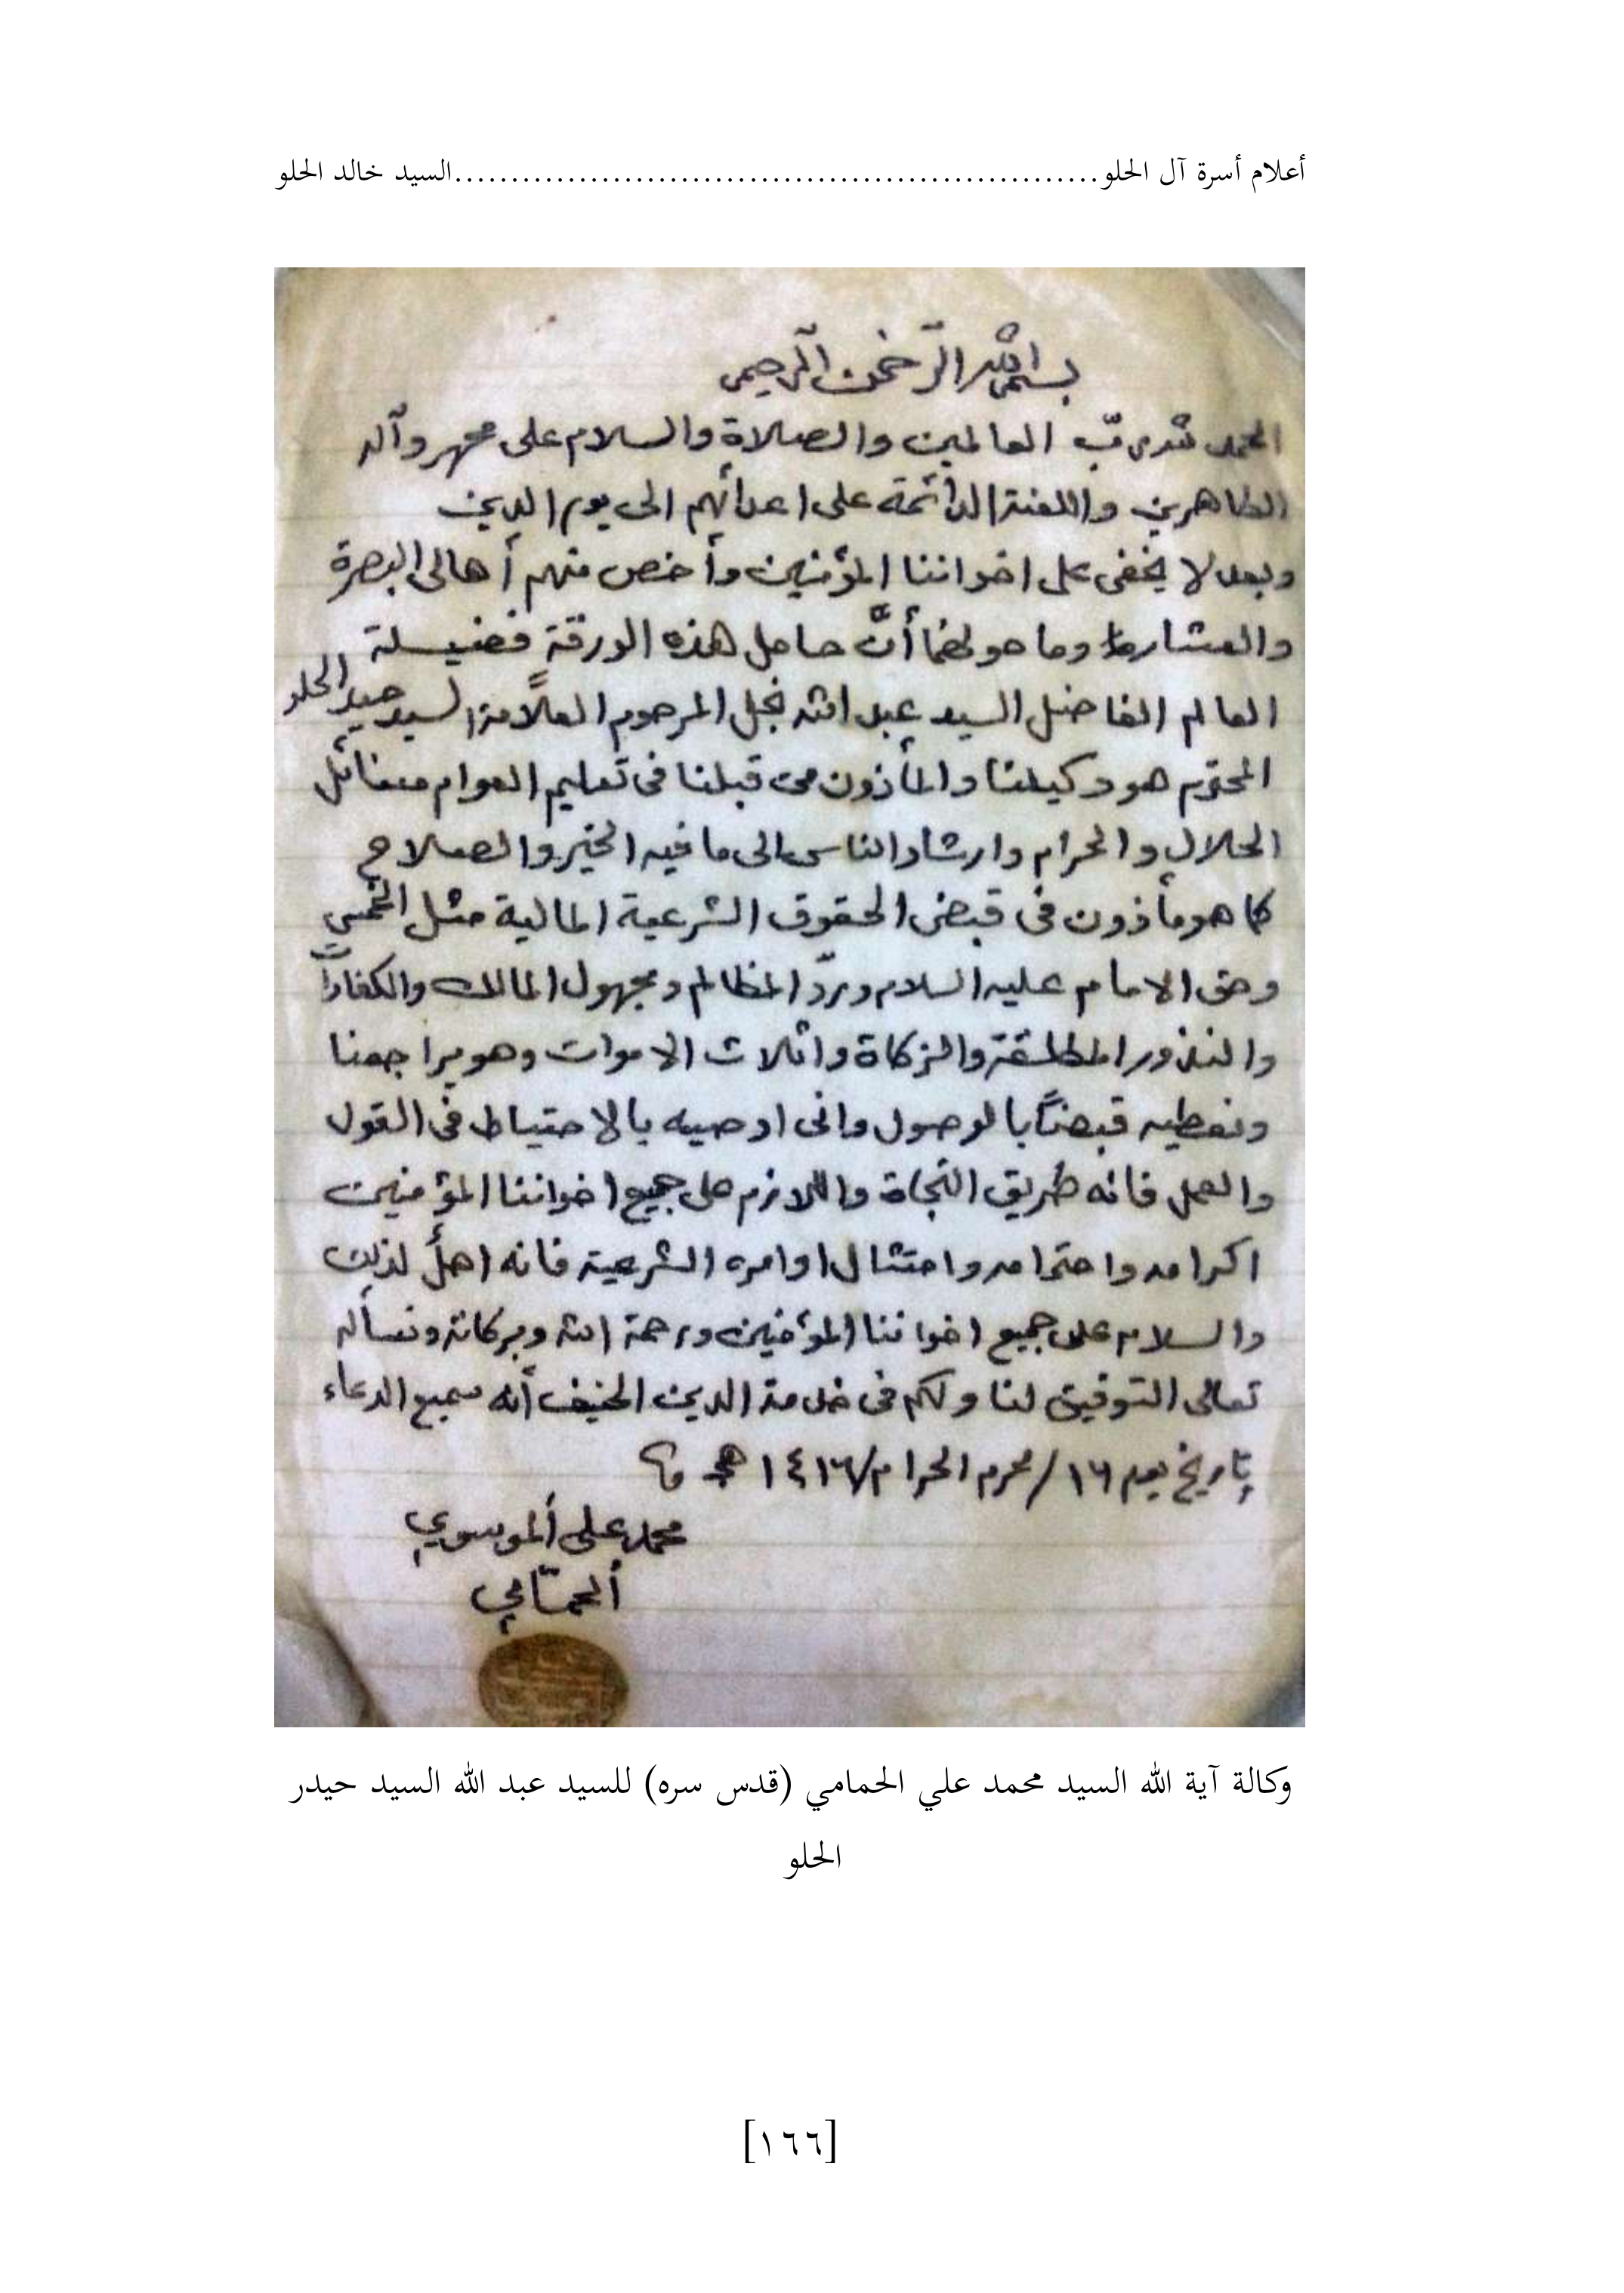 أعلام أسرة آل الحلو..........................................................السيد خالد الحلو
بسم الله الرحمن الرحيم
الحمد لله ربّ العالمين والصلاة والسلام على محمد وآله
الطاهرين واللعنة الدائمة على اعدائهم الى يوم الدين
وبعد لا يخفى على اخواننا المؤمنين وأخص منهم أهالى البصرة
والعشار وما حولهما أنَّ حامل هذه الورقة فضيلة
العالم الفاضل السيد عبد الله نجل المرحوم العلّامة السيد حيدر الحلو
المحترم هو وكيلنا والمأذون من قبلنا فى تعليم العوام مسائل
الحلال والحرام وارشاد الناس الى ما فيه الخير والصلاح
كما هو مأذون فى قبض الحقوق الشرعية المالية مثل الخمس
وحق الامام عليه السلام وردّ المظالم ومجهول المالك والكفارات
والنذور المطلقة والزكاة واثلاث الاموات وهو يراجعنا
ونعطيه قبضاً بالوصول وانى اوصيه بالاحتياط فى القول
والعمل فانه طريق النجاة واللازم على جميع اخواننا المؤمنين
اكرامه واحترامه وامتثال اوامره الشرعية فانه اهلٌ لذلك
والسلام على جميع اخواننا المؤمنين ورحمة الله وبركاته ونسأله
تعالى التوفيق لنا ولكم فى خدمة الدين الحنيف أنه سميع الدعاء
بتاريخ يوم ١٦/محرم الحرام/١٤١٦ هـ
محمد علي الموسوي
الحمّامي
وكالة آية الله السيد محمد علي الحمامي (قدس سره) للسيد عبد الله السيد حيدر
الحلو
[١٦٦]